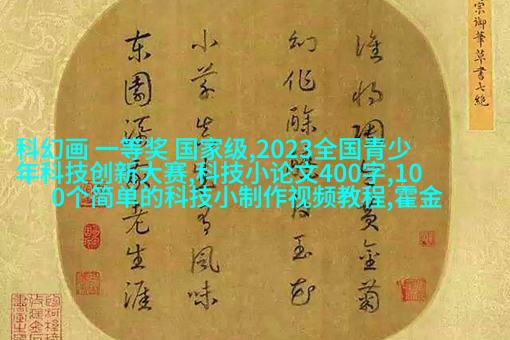 宗御筆草書七絕
誰將陶令黃金菊
幻作酴醾白玉花
小草真成有風味
東園添我老生涯
科幻画 一等奖 国家级,2023全国青少
年科技创新大赛,科技小论文400字,10
0个简单的科技小制作视频教程,霍金